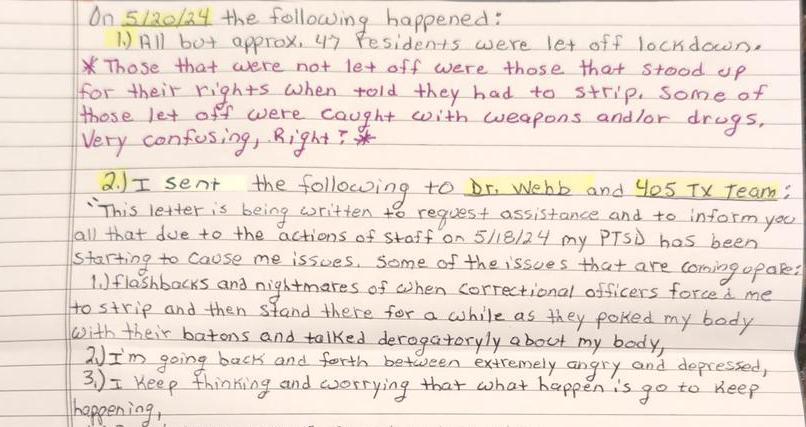 On 5/20/24 the following happened:
1.) All but approx. 47 residents were let off lockdown.
* Those that were not let off were those that stood up
for their rights when told they had to strip. Some of
those let off were caught with weapons and/or drugs.
Very confusing, Right? *
2.) I sent the following to Dr. Webb and 405 TX Team:
"This letter is being written to request assistance and to inform you
all that due to the actions of staff on 5/18/24 my PTSD has been
starting to cause me issues. Some of the issues that are coming up are:
1.) flashbacks and nightmares of when correctional officers forced me
to strip and then stand there for a while as they poked my body
with their batons and talked derogatoryly about my body,
2.) I'm going back and forth between extremely angry and depressed,
3.) I keep thinking and worrying that what happen is go to keep
happening,